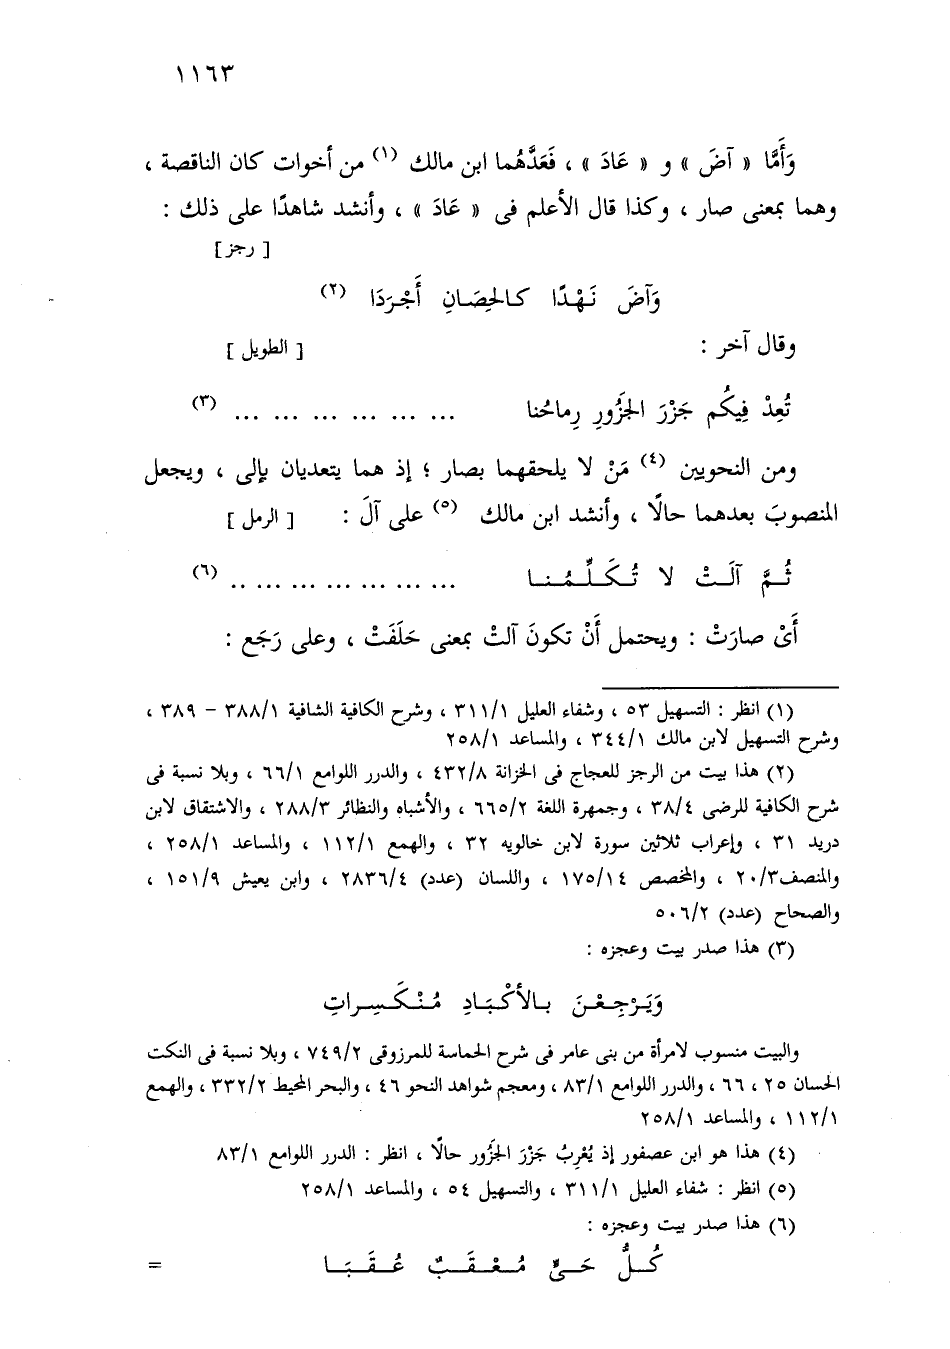 ١١٦٣
وَأَمَّا « آضَ » و « عَادَ » ، فَعَدَّهُما ابن مالك (١) من أخوات كان الناقصة ،
وهما بمعنى صار ، وكذا قال الأعلم فى « عَادَ » ، وأنشد شاهدًا على ذلك :
[ رجز ]
وَآضَ نَهْدًا كالحِصَانِ أَجْرَدَا (٢)
وقال آخر : [ الطويل ]
تُعِدْ فِيكُم جَزْرَ الجَزُورِ رِماحُنا ... ... ... ... ... ... (٣)
ومن النحويين (٤) مَنْ لا يلحقهما بصار ؛ إذ هما يتعديان بإلى ، ويجعل
المنصوبَ بعدهما حالًا ، وأنشد ابن مالك (٥) على آلَ : [ الرمل ]
ثُمَّ آلَتْ لا تُكَلِّمُنا ... ... ... ... ... .. (٦)
أَىْ صارَتْ : ويحتمل أَنْ تكونَ آلتْ بمعنى حَلَفَتْ ، وعلى رَجَع :
(١) انظر : التسهيل ٥٣ ، وشفاء العليل ٣١١/١ ، وشرح الكافية الشافية ٣٨٨/١ - ٣٨٩ ،
وشرح التسهيل لابن مالك ٣٤٤/١ ، والمساعد ٢٥٨/١
(٢) هذا بيت من الرجز للعجاج فى الخزانة ٤٣٢/٨ ، والدرر اللوامع ٦٦/١ ، وبلا نسبة فى
شرح الكافية للرضى ٣٨/٤ ، وجمهرة اللغة ٦٦٥/٢ ، والأشباه والنظائر ٢٨٨/٣ ، والاشتقاق لابن
دريد ٣١ ، وإعراب ثلاثين سورة لابن خالويه ٣٢ ، والهمع ١١٢/١ ، والمساعد ٢٥٨/١ ،
والمنصف ٢٠/٣ ، والمخصص ١٧٥/١٤ ، واللسان (عدد) ٢٨٣٦/٤ ، وابن يعيش ١٥١/٩ ،
والصحاح (عدد) ٥٠٦/٢
(٣) هذا صدر بيت وعجزه :
وَيَرْجِعْنَ بالأَكْبَادِ مُنْكَسِراتِ
والبيت منسوب لامرأة من بنى عامر فى شرح الحماسة للمرزوقى ٧٤٩/٢ ، وبلا نسبة فى النكت
الحسان ٢٥ ، ٦٦ ، والدرر اللوامع ٨٣/١ ، ومعجم شواهد النحو ٤٦ ، والبحر المحيط ٣٣٢/٢ ، والهمع
١١٢/١ ، والمساعد ٢٥٨/١
(٤) هذا هو ابن عصفور إذ يُعْرِبُ جَزْرَ الجَزُور حالًا ، انظر : الدرر اللوامع ٨٣/١
(٥) انظر : شفاء العليل ٣١١/١ ، والتسهيل ٥٤ ، والمساعد ٢٥٨/١
(٦) هذا صدر بيت وعجزه :
كُلُّ حَىٍّ مُعْقَبٌ عُقَبَا =